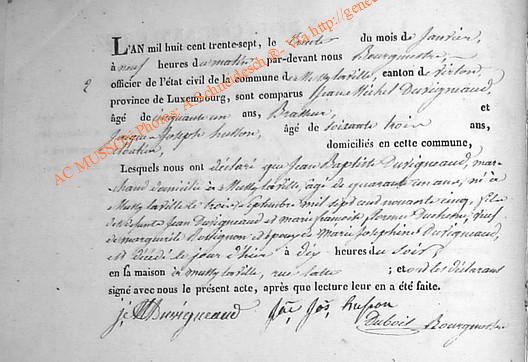 L'AN mil huit cent trente-sept, le trente du mois de Janvier,
à neuf heures du matin par-devant nous Bourgmestre,
officier de l'état civil de la commune de Mussy la ville, canton de Virton,
2
province de Luxembourg, sont comparus Jean Michel Duvigneaud,
âgé de cinquante un ans, Brasseur, et
Jacques Joseph husson, âgé de soixante trois ans,
domiciliés en cette commune,
Lesquels nous ont déclaré que Jean Baptiste Duvigneaud, mar-
chand domicilié à Mussy la ville, âgé de quarante un ans, né à
Mussy la ville le trois septembre mil sept cent nonante cinq, fils
de Jean Duvigneaud et marie françoise Duchesne, veuf
de marguerite Rossignon et époux de marie Josephine Duvigneaud,
est décédé le jour d'hier à dix heures du soir,
en sa maison à mussy la ville, rue ; et ont les déclarans
signé avec nous le présent acte, après que lecture leur en a été faite.
J. M Duvigneaud Jos husson
Dubois Bourgmestre
AC MUSSON Photos: A. Schneidesch ®- Via http://gene